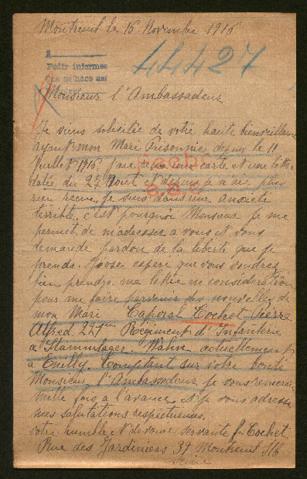 Montreuil le 16 Novembre 1916
A
Pedir informes
44427
Monsieur l'Ambassadeur
Je viens sollicité de votre haute bienveillance
ayant mon Mari Prisonnier depuis le 11
Juillet 1916 j'ai une carte et une lettre
datée du 27 Août et depuis je n'ai plus
rien recue, je suis dans une anxiété
terrible, c'est pourquoi Monsieur je me
permet de m'adresser a vous et vous
demande pardon de la liberté que je
prends. J'ose espere que vous voudrez
bien prendre ma lettre en considération
pour me faire parvenir des nouvelles de
mon Mari Caporal Cochet Pierre
Alfred 227me Regiment d'Infanterie
a Stammlager Hahn actuellement
a Comptant sur votre bonté
Monsieur l'Ambassadeur je vous remercie
mille fois a l'avance et je vous adresse
mes salutations respectueuses.
votre humble et devouée servante fe Cochet
Rue des Jardiniers 37 Montreuil S/B
Seine